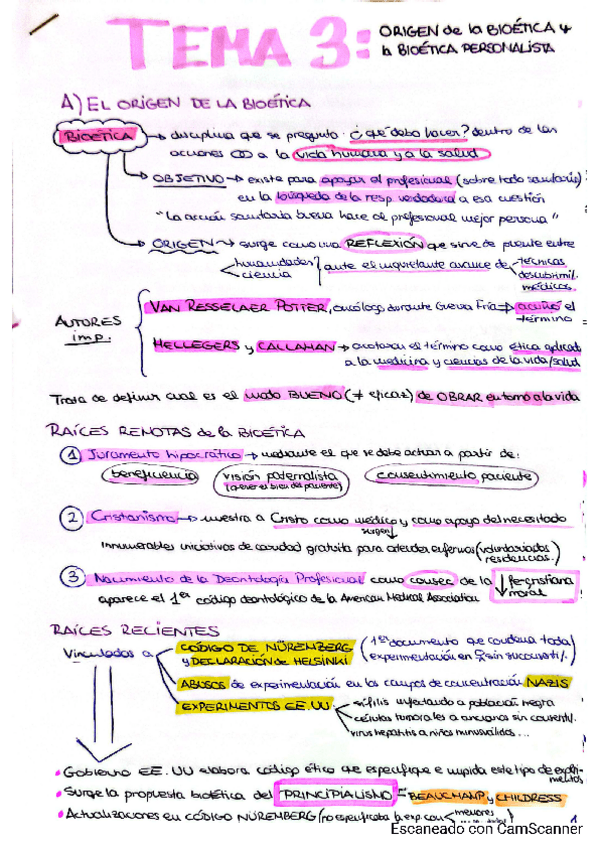 TEMA 3: ORIGEN de la BIOÉTICA y
la BIOÉTICA PERSONALISTA
A) EL ORIGEN DE LA BIOÉTICA
BIOÉTICA → disciplina que se pregunta ¿qué debo hacer? dentro de las
acciones a la vida humana y a la salud
OBJETIVO → existe para apoyar al profesional (sobre todo sanitario)
en la búsqueda de la resp. verdadera a esa cuestión
"La acción sanitaria buena hace al profesional mejor persona"
ORIGEN → surge como una REFLEXIÓN que sirve de puente entre
humanidades
ciencia
ante el inquietante avance de
técnicas
descubrimi.
médicos.
AUTORES imp.
VAN RESSELAER POTTER, oncólogo durante Guerra Fría → acuñó el
término
HELLEGERS y CALLAHAN → acotaron el término como ética aplicada
a la medicina y ciencias de la vida/salud
Trata de definir cual es el modo BUENO (≠ eficaz) de OBRAR entorno a la vida
RAÍCES REMOTAS de la BIOÉTICA
1 Juramento hipocrático → mediante el que se debe actuar a partir de:
beneficencia
visión paternalista
consentimiento paciente
2 Cristianismo → muestra a Cristo como médico y como apoyo del necesitado
surgen
Innumerables iniciativas de caridad gratuita para atender enfermos (voluntariados
residencias..)
3 Nacimiento de la Deontología Profesional como causa de la ↓ fe cristiana
moral
aparece el 1er código deontológico de la American Medical Association
RAÍCES RECIENTES
Vinculadas a
CÓDIGO DE NÜREMBERG
y DECLARACIÓN de HELSINKI
(1er documento que condena toda
experimentación en
sin su consenti/.)
ABUSOS de experimentación en los campos de concentración NAZIS
EXPERIMENTOS EE.UU
sífilis infectando a población negra
células tumorales a ancianos sin consenti/.
virus hepatitis a niños minusválidos...
• Gobierno EE.UU elabora código ético que especifique e impida este tipo de experi-
mentos
• Surge la propuesta bioética del PRINCIPIALISMO = BEAUCHAMP y CHILDRESS
• Actualizaciones en CÓDIGO NÜREMBERG (no especificaba la exp. con menores
1
Escaneado con CamScanner